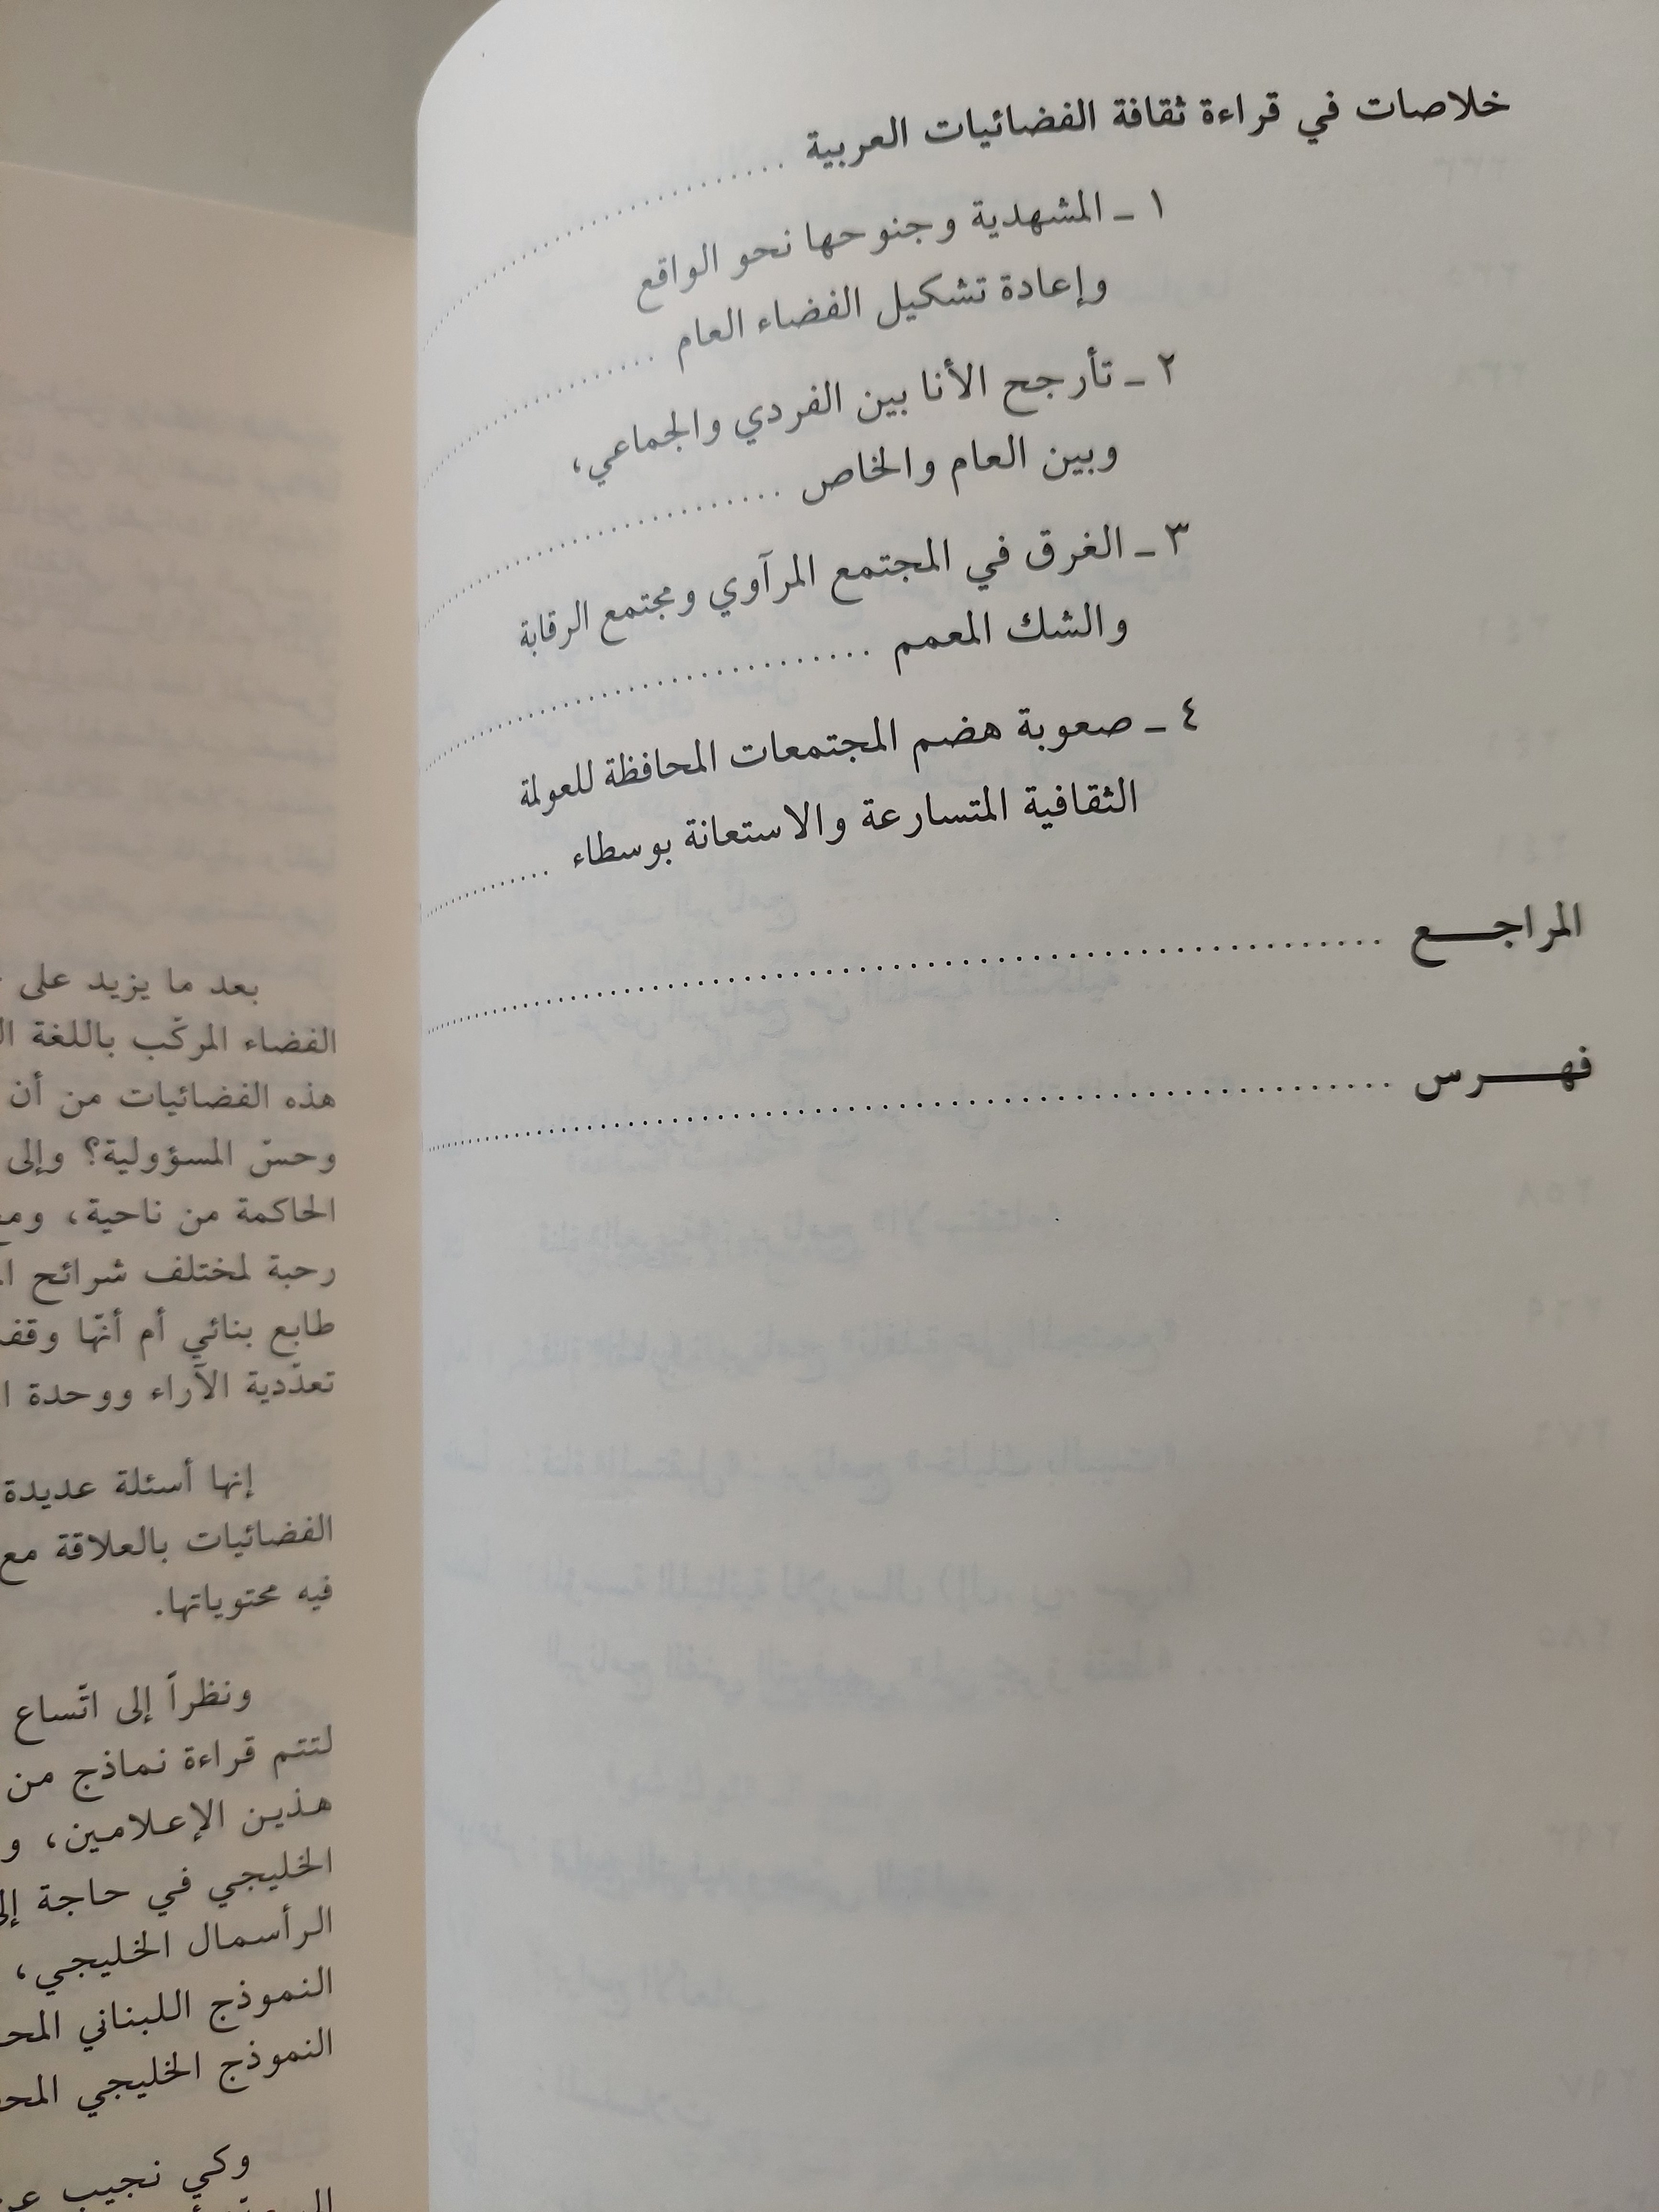 خلاصات في قراءة ثقافة الفضائيات العربية
١ ـ المشهدية وجنوحها نحو الواقع
وإعادة تشكيل الفضاء العام
٢ ـ تأرجح الأنا بين الفردي والجماعي،
وبين العام والخاص
٣ ـ الغرق في المجتمع المرآوي ومجتمع الرقابة
والشك المعمم
٤ ـ صعوبة هضم المجتمعات المحافظة للعولمة
الثقافية المتسارعة والاستعانة بوسطاء
المراجـــع
فهـــرس
بعد ما يزيد على
الفضاء المركّب باللغة
هذه الفضائيات من أن
وحسّ المسؤولية؟ وإلى
الحاكمة من ناحية،
رحبة لمختلف شرائح
طابع بنائي أم أنّها
تعدّدية الآراء ووحدة
إنها أسئلة عديدة
الفضائيات بالعلاقة مع
فيه محتوياتها.
ونظراً إلى اتّساع
لتتم قراءة نماذج من
هذين الإعلامين، و
الخليجي في حاجة
الرأسمال الخليجي،
النموذج اللبناني
النموذج الخليجي
وكي نجيب